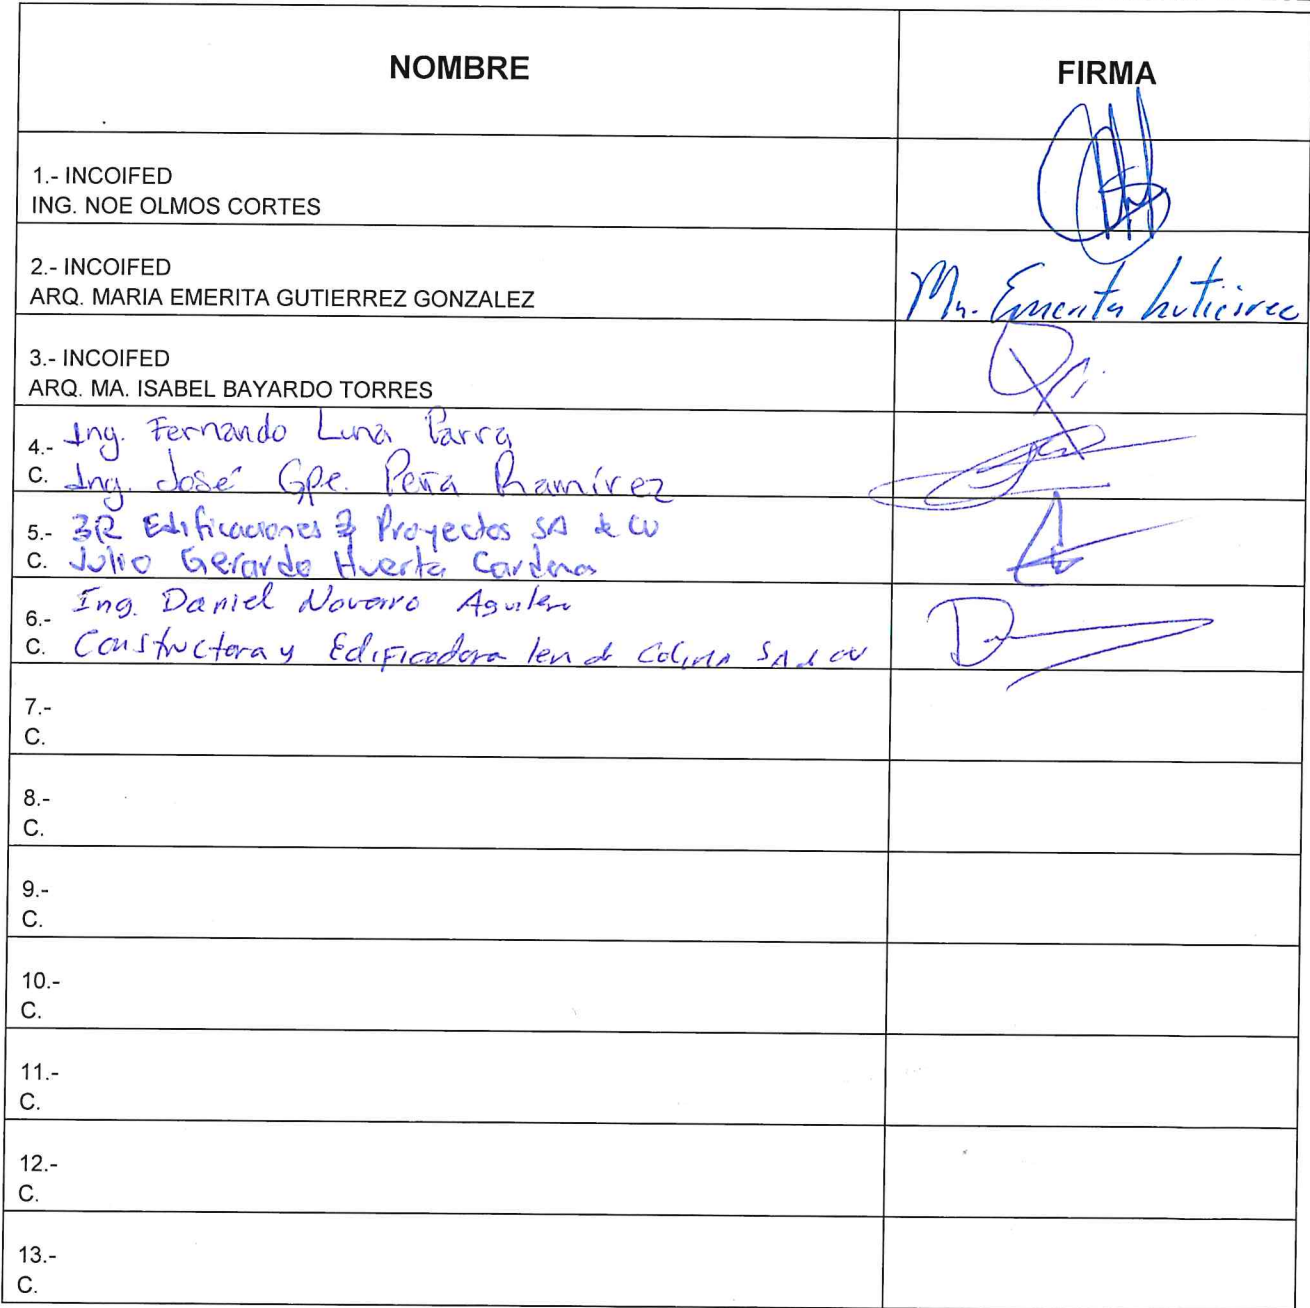 NOMBRE
FIRMA
1.- INCOIFED
ING. NOE OLMOS CORTES
2.- INCOIFED
ARQ. MARIA EMERITA GUTIERREZ GONZALEZ
Ma. Emerita Gutierrez
3.- INCOIFED
ARQ. MA. ISABEL BAYARDO TORRES
4.- Ing. Fernando Luna Parra
C. Ing. José Gpe. Peña Ramírez
5.- 3R Edificaciones & Proyectos SA de CV
C. Julio Gerardo Huerta Cardenas
6.- Ing. Daniel Navarro Aguilera
C. Constructora y Edificadora de Colima SA de CV
7.-
C.
8.-
C.
9.-
C.
10.-
C.
11.-
C.
12.-
C.
13.-
C.